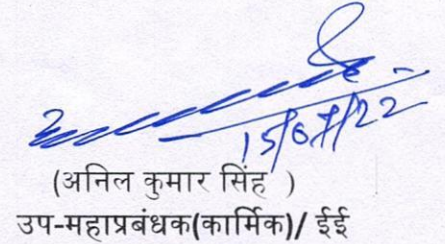 15/07/22
(अनिल कुमार सिंह )
उप-महाप्रबंधक(कार्मिक)/ ईई